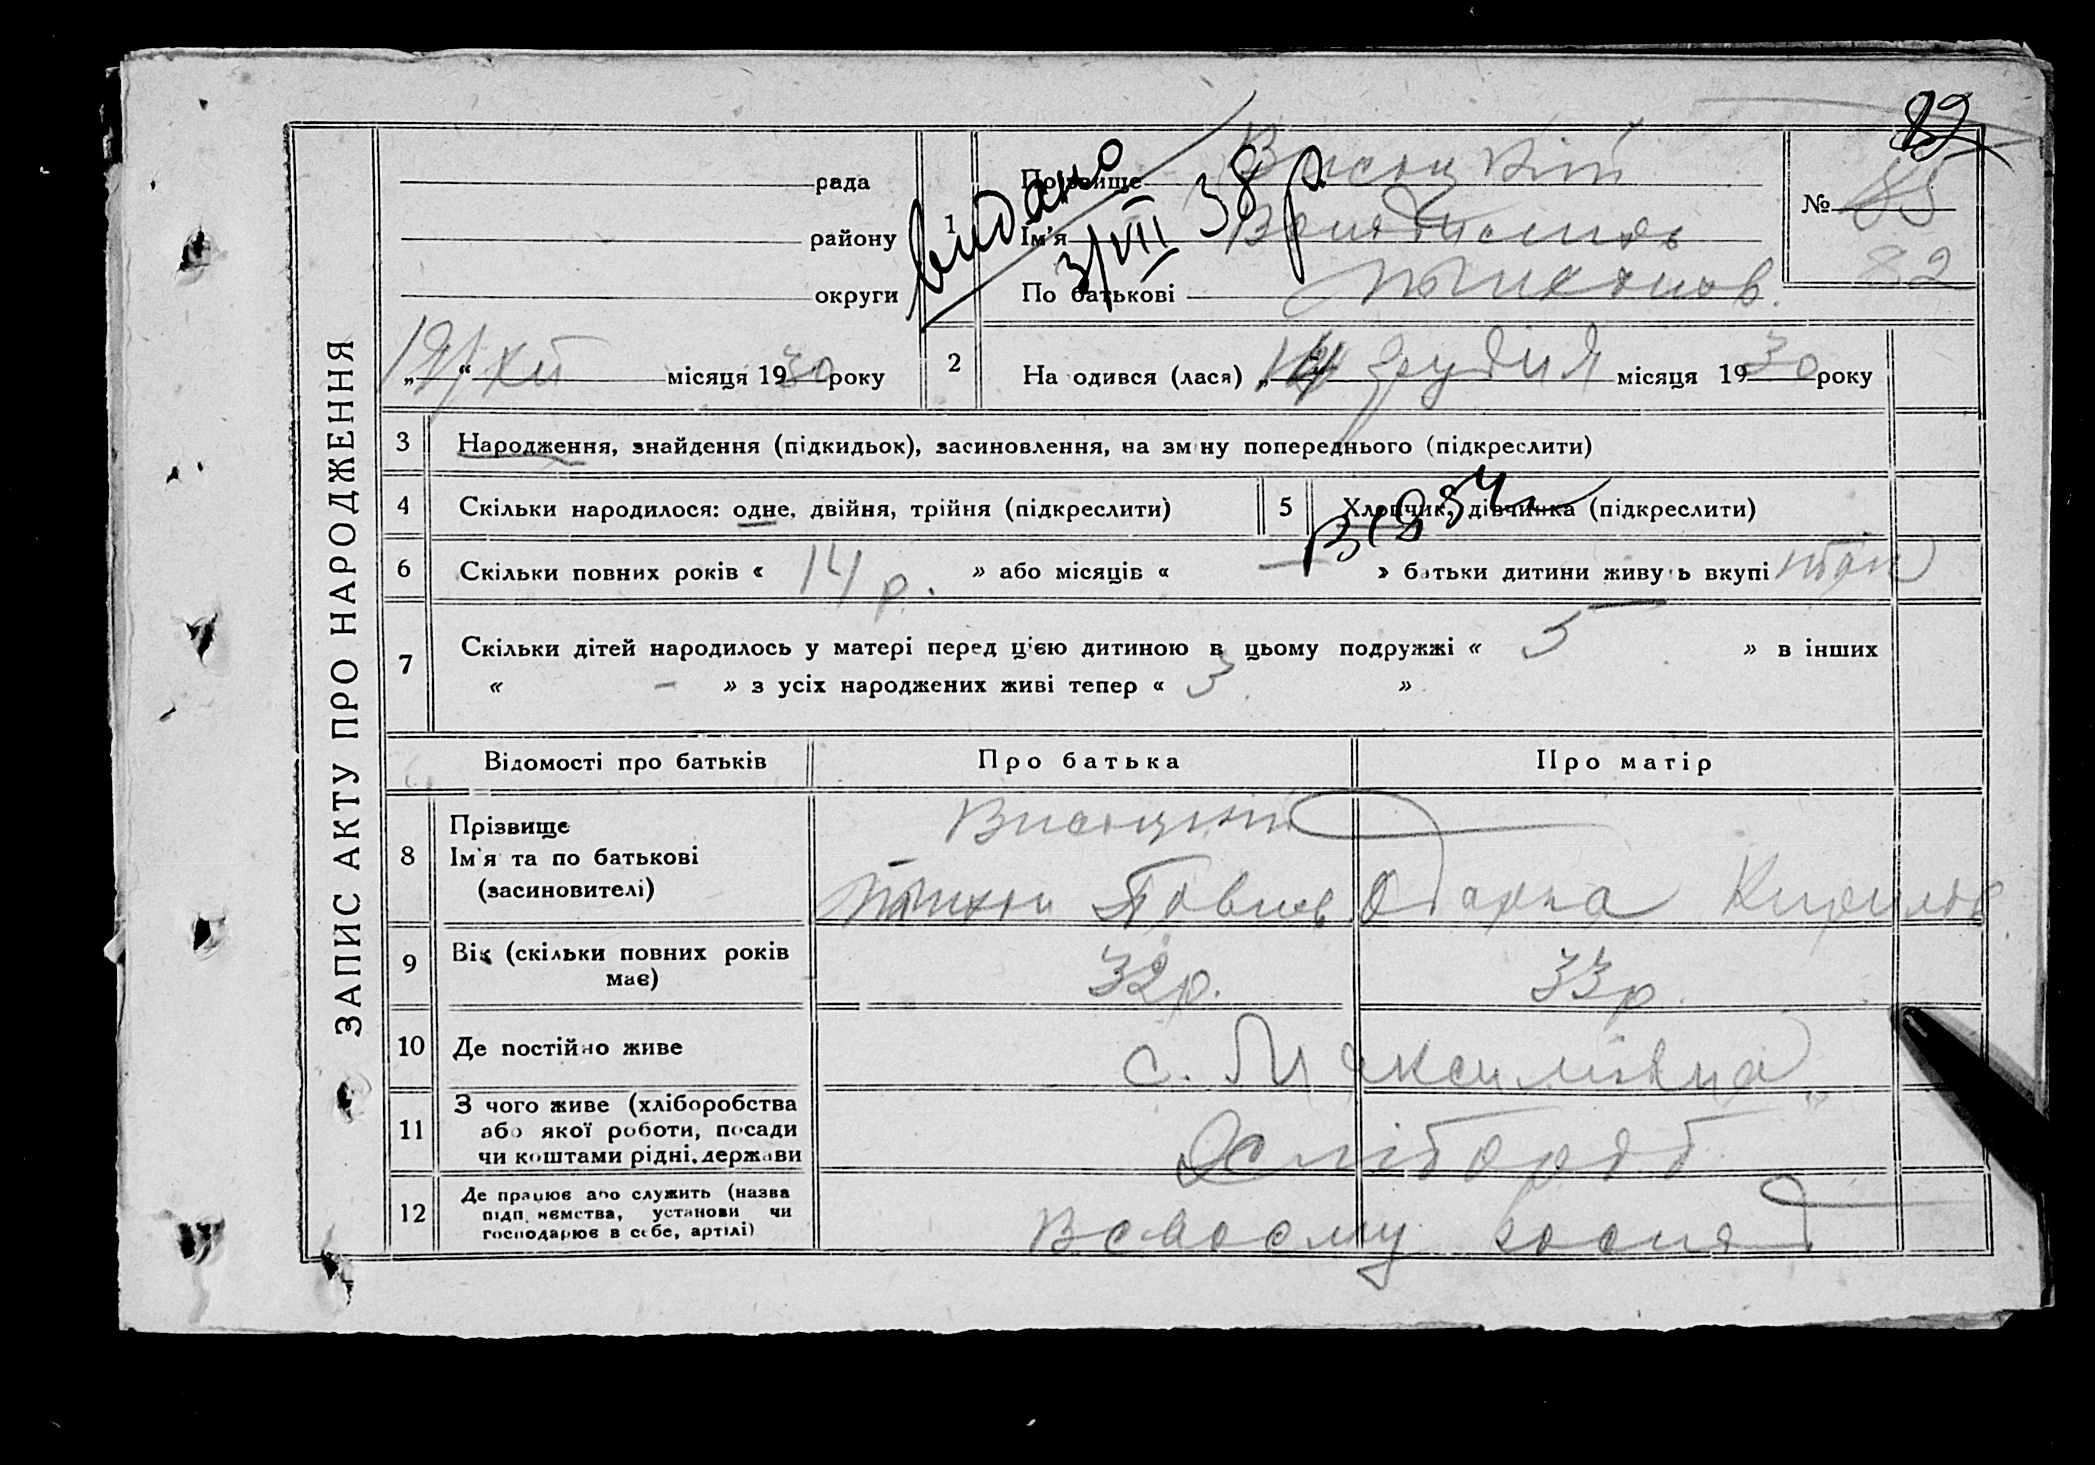 82
ЗАПИС АКТУ ПРО НАРОДЖЕННЯ
рада
району
округи
видано
3/VII 38 р
1
Прізвище Висоцкій
Ім'я
По батькові Тихонов.
№ 85
82
19/XII місяця 1930 року
2
На одився (лася) „ грудня місяця 1930 року
3 Народження, знайдення (підкидьок), засиновлення, на зм ну попереднього (підкреслити)
4 Скільки народилося: одне, двійня, трійня (підкреслити)
5 Хлопчик, дівчинка (підкреслити)
6 Скільки повних років « 14 р. » або місяців « — » батьки дитини живуть вкупі так
7 Скільки дітей народилось у матері перед ц'єю дитиною в цьому подружжі « 5 » в інших
« – » з усіх народжених живі тепер « 3 »
Відомості про батьків Про батька Про матір
8 Прізвище
Ім'я та по батькові
(засновителі)
Висоцкій
Тихон Павлов Одарка Кирилов
9 Вік (скільки повних років
має)
32р. 33р.
10 Де постійно живе с. Максимівка
11 З чого живе (хліборобства
або якої роботи, посади
чи коштами рідні, держави
Хлібороб
12 Де працює або служить (назва
підп иємства, установи чи
господарює в себе, артілі)
В своому господ